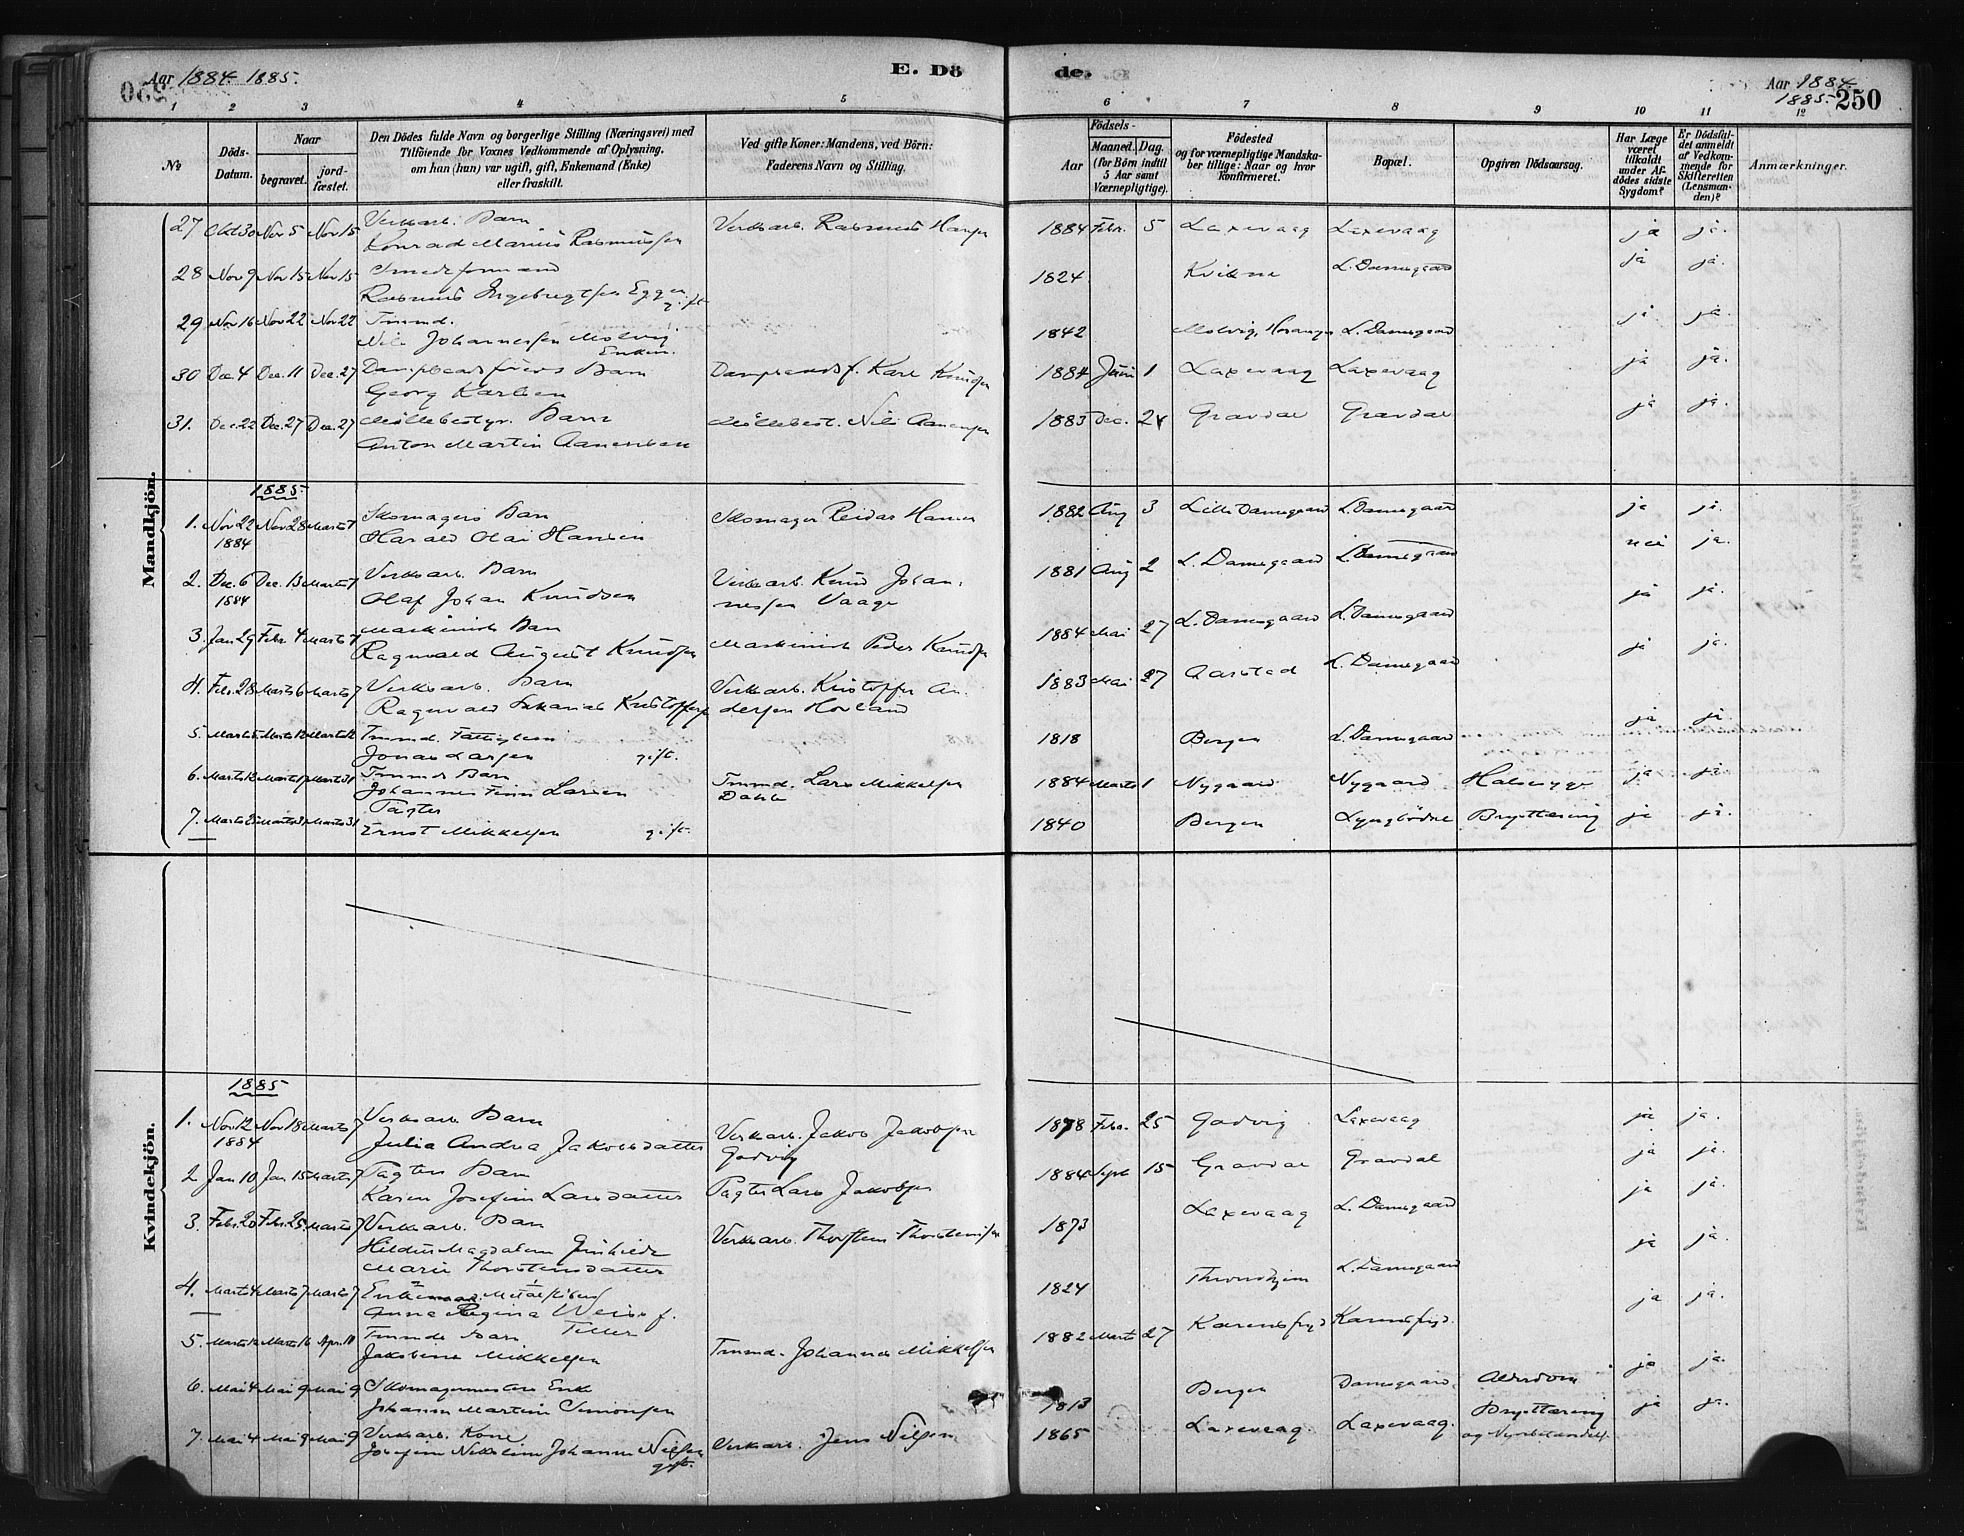 Aar 1884. 1885.
E. Dö
de.
Aar 1884.
1885.
250
1 2 3 4 5 6 7 8 9 10 11 12
№
Döds-
Datum.
Naar
begravet.
jord-
fæstet.
Den Dödes fulde Navn og borgerlige Stilling (Næringsvei) med
Tilföiende for Voxnes Vedkommende af Oplysning,
om han (hun) var ugift, gift, Enkemand (Enke)
eller fraskilt.
Ved gifte Koner: Mandens, ved Börn:
Faderens Navn og Stilling.
Födsels-
Aar
Maaned. Dag.
(for Börn indtil
5 Aar samt
Værnepligtige).
Födested
og for værnepligtige Mandska-
ber tillige: Naar og hvor
konfirmeret.
Bopæl.
Opgiven Dödsaarsag.
Har Læge
været
tilkaldt
under Af-
dödes sidste
Sygdom?
Er Dödsfal-
det anmeldt
af Vedkom-
mende for
Skifteretten
(Lensman-
den)?
Anmærkninger.
Mandkjön.
27 Okt 30 Nov 5 Nov 15 Verksarb. Barn Verksarb. Rasmus Hansen 1884 Febr. 5 Laxevaag Laxevaag ja ja.
Konrad Marius Rasmussen
28 Nov 9 Nov 15 Nov 15 Smedeformand 1824 Kvikne L. Damsgaard ja ja.
Rasmus Ingebregtsen Eggen gift
29 Nov 16 Nov 22 Nov 22 Tmmd. 1842 Molvig, L. Damsgaard ja ja.
Nils Johannessen Molvig
Enkem.
30 Dec. 4 Dec. 11 Dec. 27 Barn Karl Knudsen 1884 Juni 1 Laxevaag Laxevaag ja ja.
Georg Karlsen
31. Dec. 22 Dec. 27 Dec. 27 Möllebestyr. Barn Möllebest. Nils Aanensen 1883 Dec. 24 Gravdal Gravdal ja ja.
Anton Martin Aanensen
1885.
1. Nov 22 Nov 28 Marts 7 Skomagers Barn Skomager Reidar Hansen 1882 Aug 3 Lille Damsgaard L. Damsgaard ja ja.
1884 Harald Olai Hansen
2. Dec. 6 Dec. 13 Marts 7 Verksarb. Barn Verksarb. Knud Johan- 1881 Aug 2 L. Damsgaard L. Damsgaard nei ja.
1884 Olaf Johan Knudsen nessen Vaage
3. Jan 29 Febr 4 Marts 7 Maskinist Barn Maskinist Peder Knudsen 1884 Mai 27 L. Damsgaard L. Damsgaard ja ja.
Ragnvald August Knudsen
4. Febr 28 Marts 6 Marts 7 Verksarb. Barn Verksarb. Kristoffer An- 1883 Mai 27 Aarstad L. Damsgaard ja ja.
Ragnvald Sakarias Kristoffersen dersen Hovland
5. Marts 5 Marts 12 Marts 12 Tmmd. Fattiglem 1818 Bergen L. Damsgaard ja ja
Jonas Larsen gift.
6. Marts 13 Marts Marts 31 Tmmds Barn Tmmd. Lars Mikkelsen 1884 Marts 1 Nygaard Nygaard Halssyge ja ja
Johannes Finn Larsen Dahle
7. Marts 25 Marts 31 Marts 31 Pagter 1840 Bergen Lyngbödal Brysttæring ja ja.
Ernst Mikkelsen gift.
Kvindekjön.
1885
1. Nov 12 Nov 18 Marts 7 Verksarb. Barn Verksarb. Jakob Jakobsen 1878 Febr. 25 Godvig Laxevaag ja ja.
1884 Julia Andrea Jakobsdatter Godvig
2 Jan 10 Jan 15 Marts 7 Pagters Barn Pagter Lars Jakobsen 1884 Sept 15 Gravdal Gravdal ja ja.
Karen Josefine Larsdatter
3. Febr. 20 Febr. 25 Marts 7 Verksarb. Barn Verksarb. Thorsten Thorstensen 1873 Laxevaag L. Damsgaard ja ja.
Hildur Magdalena
Marie Thorstensdatter
4. Marts 4 Marts 7 Marts 7 Enke 1824 Throndhjem L. Damsgaard ja ja.
Anna Regina Weise f.
Teller
5. Marts Marts 16 Apr. 11 Tmmds Barn Tmmd. Johannes Mikkelsen 1882 Marts 27 Karensfryd Karensfryd. ja ja.
Jakobine Mikkelsen
6. Mai 4 Mai 9 Mai 9 Skomagermesters Enke 1813 Bergen Damsgaard. Alderdom ja ja.
Johanne Martine Simonsen
7. Mai 4 Mai 9 Mai 9 Verksarb. Kone Verksarb. Jens Nilsen 1865 Laxevaag. Laxevaag. Brysttæring ja ja.
Josefine Johanne Nilsen og
gift.